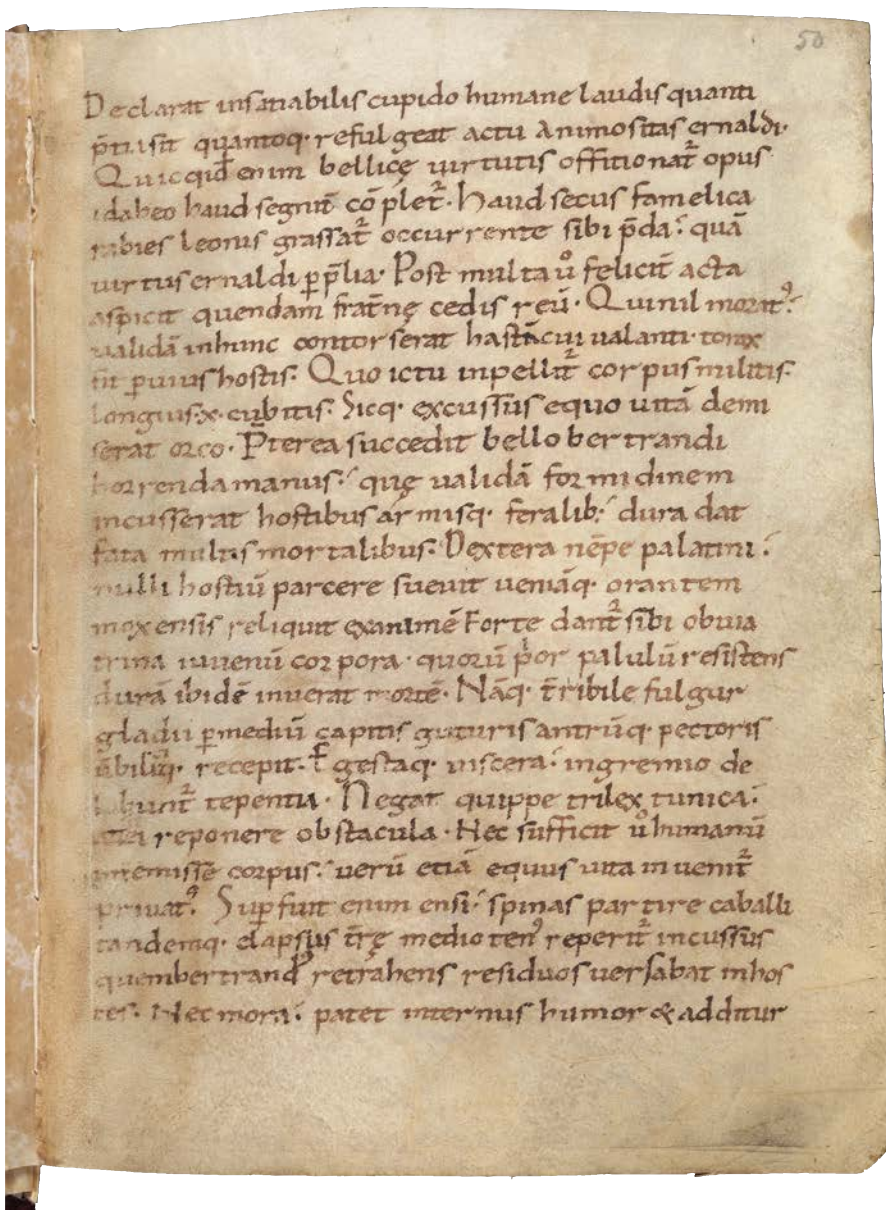 50
Declarat insatiabilis cupido humane laudis quanti
p̄tii sit quantoq· refulgeat actu Animositas ernaldi·
Quicqid enim bellicę uirtutis offitionat᷑ opus
idabeo haud segnit̄ cōplet᷑· haud secus famelica
rabies leonis grassat᷑ occurrente sibi p̄da⸵ quā
uirtus ernaldi ꝑ p̄lia· Post multa u̅ feliciť acta
aspicit quendam frat̄nę cedis reū· Qui nil moratꝰ⸵
ualidā in hunc contorserat hastā cui ualanti torax
fit ꝑuius hostis· Quo ictu inpellit᷑ corpus militis·
longius·x·cubitis· Sicq· excussus equo uitā demi
serat orco· P̄terea succedit bello bertrandi
horrenda manus⸵ quę ualidā formidinem
incusserat hostibus armisq· feralib⸵ dura dat
fata multis mortalibus· Dextera nēpe palatini⸵
nulli hostiū parcere sueuit ueniāq· orantem
mox ensis reliquit exanimē Forte dant᷑ sibi obuia
trina iuuenū corpora· quorū p̍or palulū resistens
durā ibidē inuerat mortē· Nāq· t̄ribile fulgur
gladii ꝑ mediū capitis guturis antrūq· pectoris
ūbiliq· recepit· Egestaq· uiscera⸵ in gremio de
labunt᷑ tepentia· Negat quippe trilex tunica⸵
reponere obstacula· Nec sufficit u̅ humanū
intemisse corpus⸵ uerū etiā equus uita inuenit᷑
priuatꝰ· Suꝑfuit enim ensi⸵ spinas partire caballi
tandemq· elapsus t̄rę medio tenꝰ reperit᷑ incussus
quem bertrandꝰ retrahens residuos uersabat in hos
tes· Nec mora⸵ patet internus humor & additur